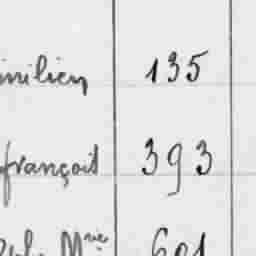 milien 135
françois 393
Mrie 601